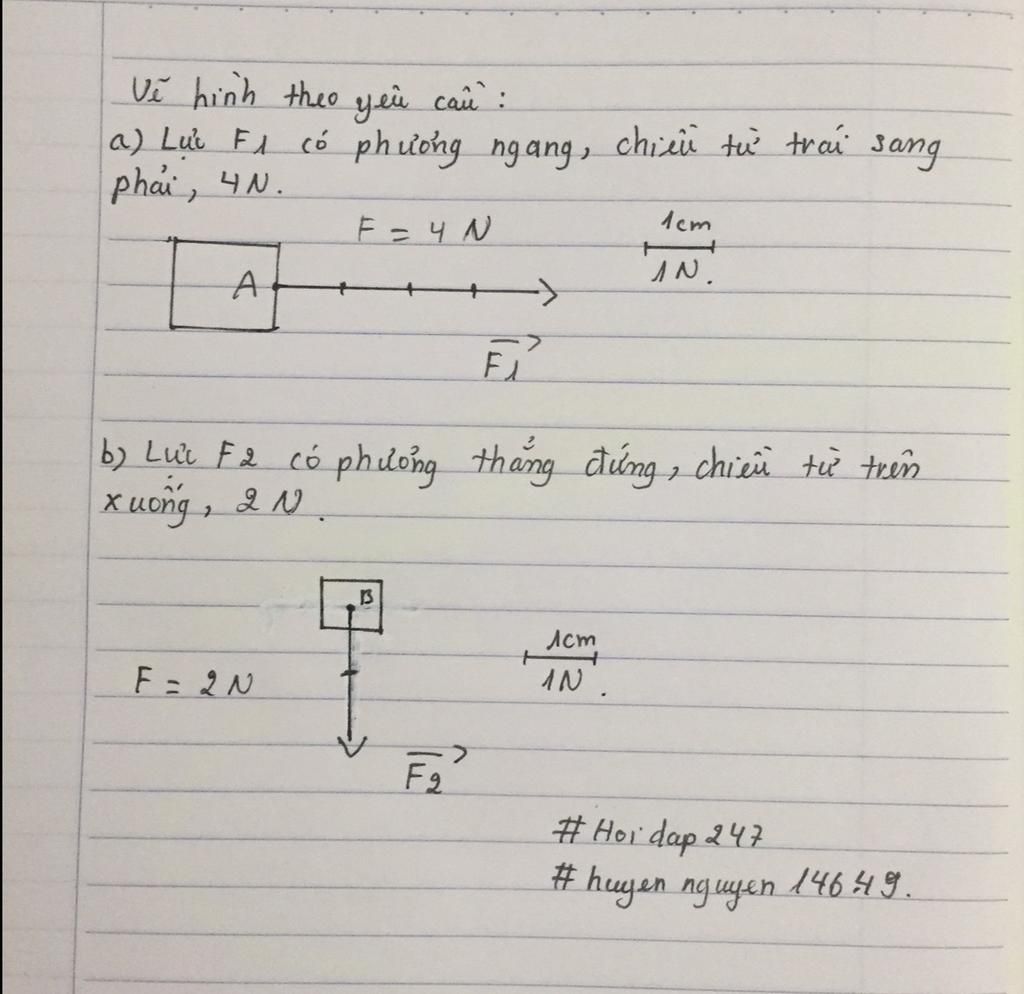 Vẽ hình theo yêu cầu :
a) Lực F1 có phương ngang, chiều từ trái sang
phải, 4N.
F = 4 N
1cm
A
1N.
F1
b) Lực F2 có phương thẳng đứng, chiều từ trên
xuống, 2 N.
B
1cm
F = 2N
1N.
F2
# Hoi dap 247
# huyen nguyen